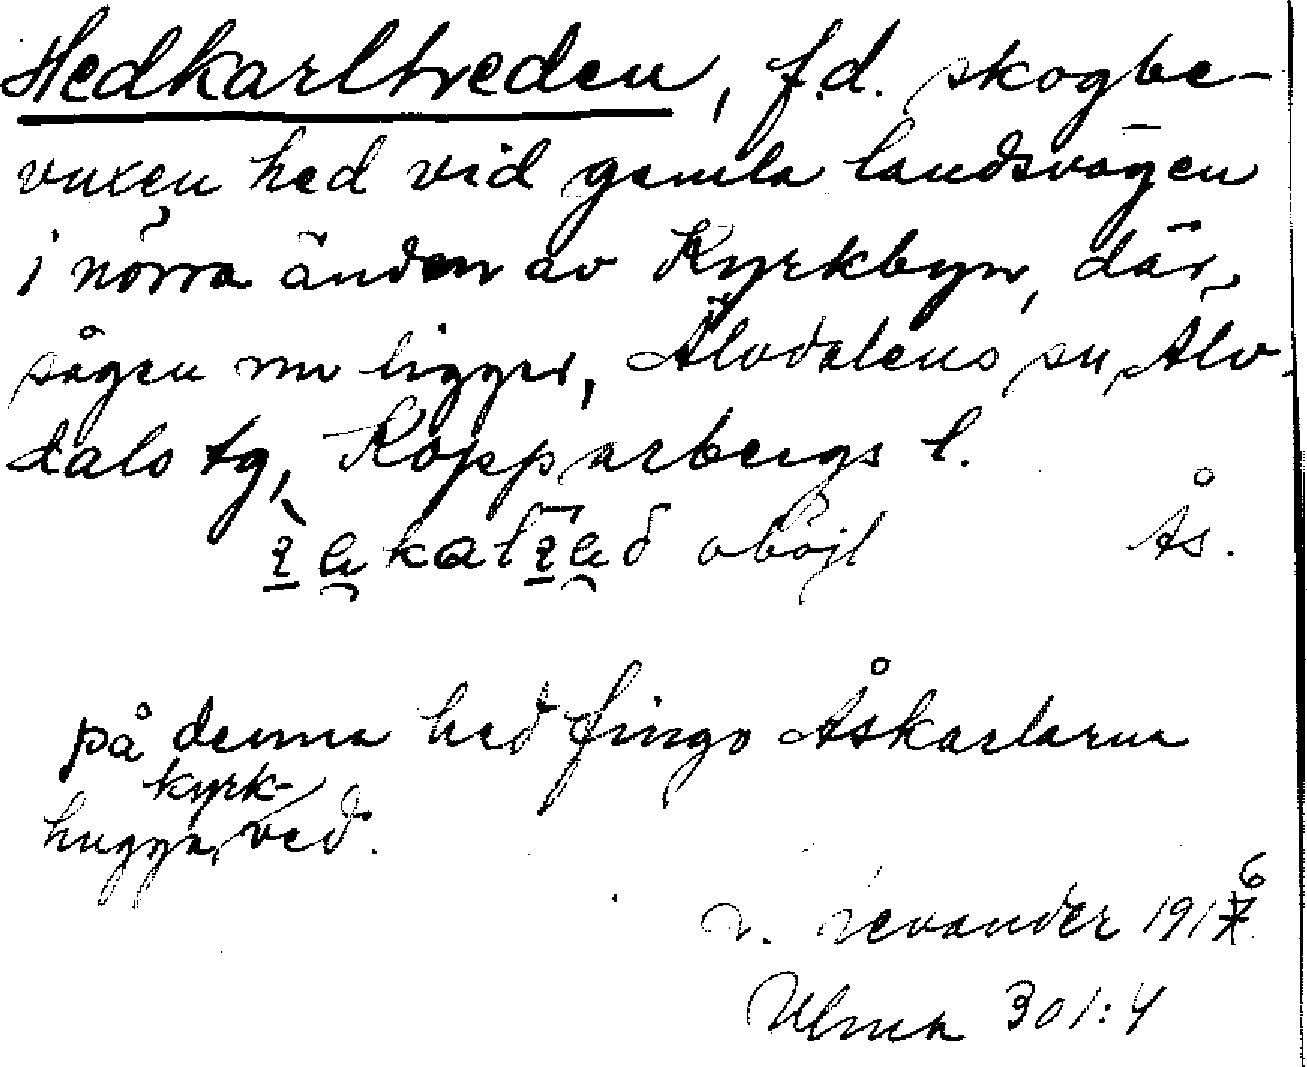 Hedkarlhreden, f.d. skogbe-
vuxen hed vid gamla landsvägen
i norra änden av Kyrkbyn, där
sågen nu ligger, Älvdalens sn, Älv-
dals tg, Kopparbergs l.
oböjl Ås.
på denna hed fingo Åskarlarna
kyrk-
hugga ved.
L. Levander 1916
Ulma 301:4